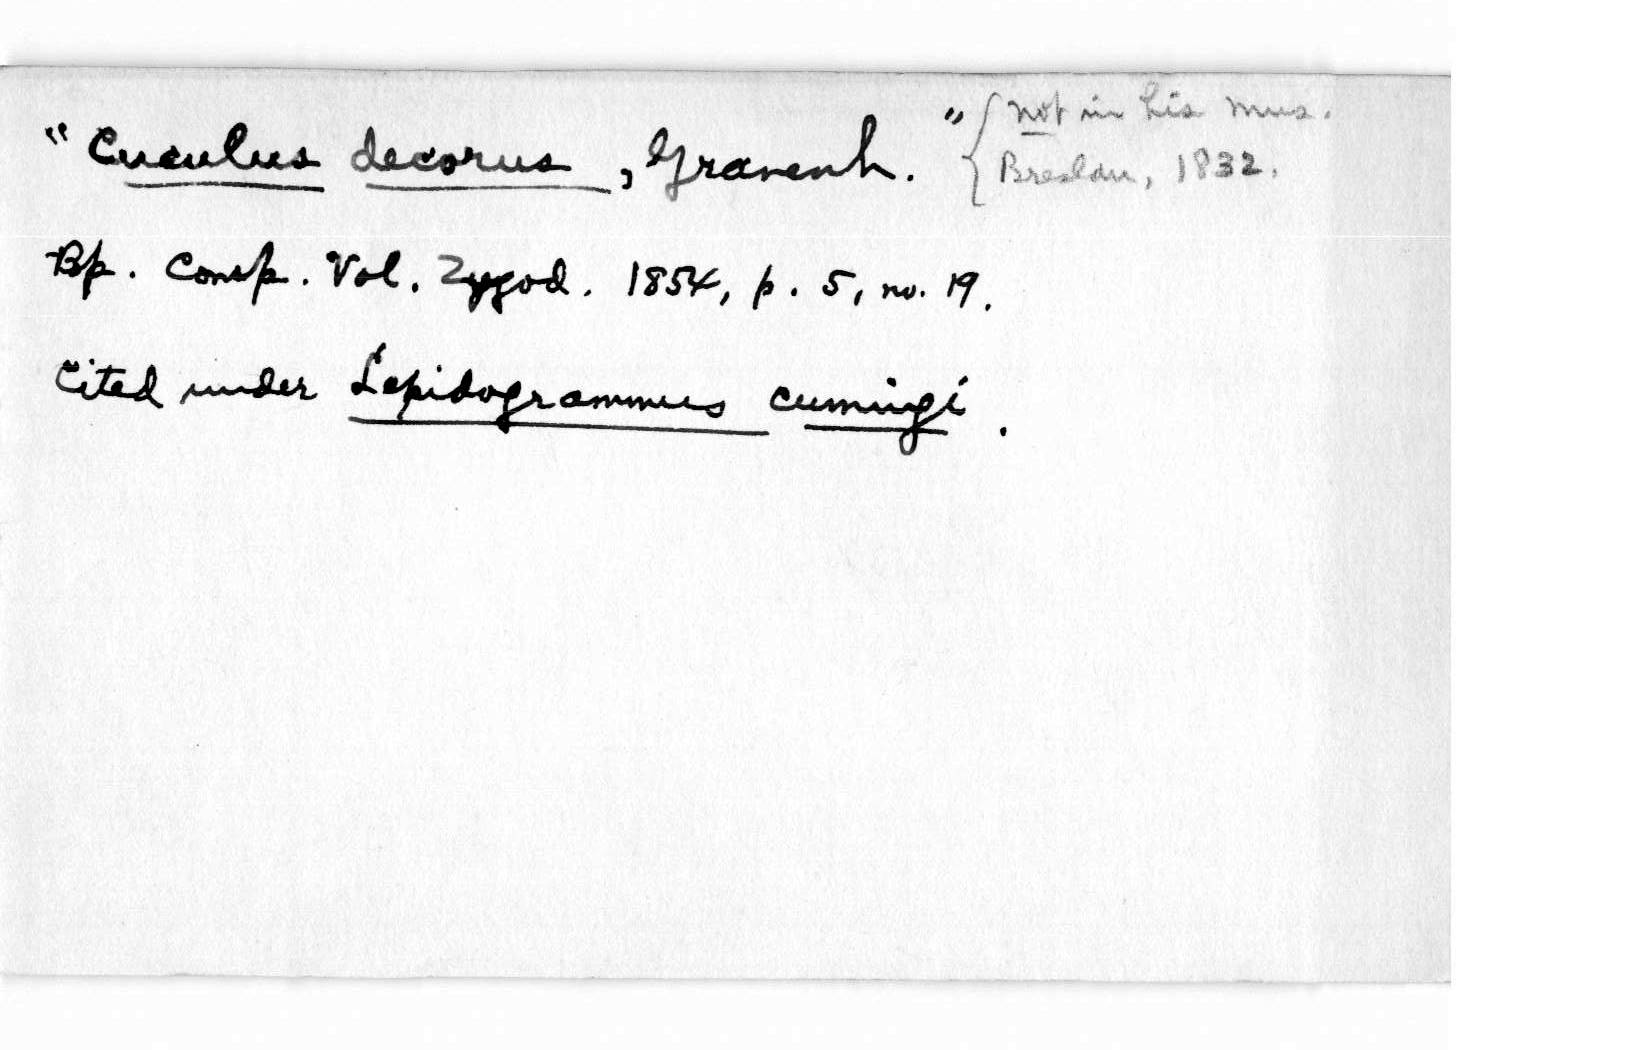 "Cuculus decorus, Gravenh." { not in his mus.
Breslau, 1832.
Bp. Consp. Vol. Zygod. 1854, p. 5, no. 19.
Cited under Lepidogrammus cumingi.